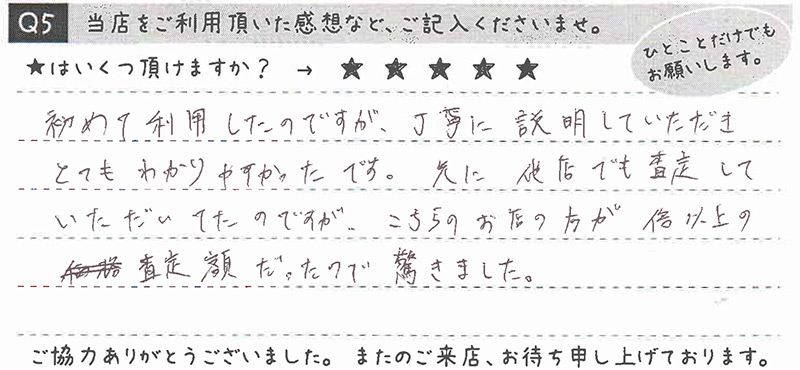 Q5 当店をご利用頂いた感想など、ご記入くださいませ。
ひとことだけでも
お願いします。
★はいくつ頂けますか？ → ★ ★ ★ ★ ★
初めて利用したのですが、丁寧に説明していただき
とてもわかりやすかったです。先に他店でも査定して
いただいてたのですが、こちらのお店の方が倍以上の
査定額だったので驚きました。
ご協力ありがとうございました。 またのご来店、お待ち申し上げております。